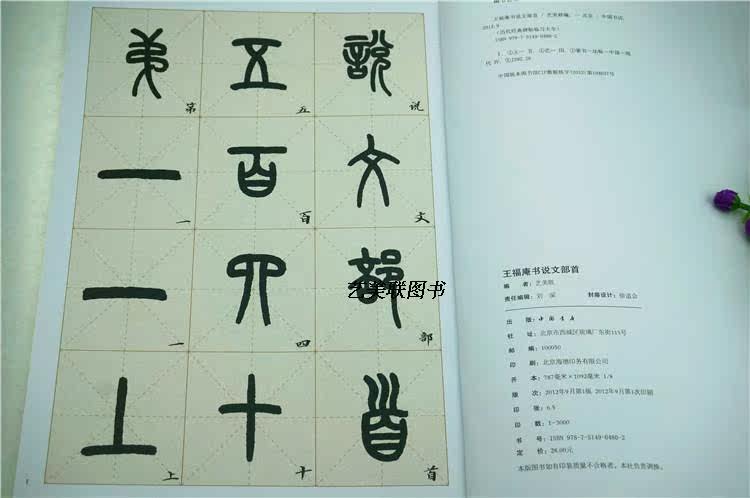 說文部首
说文部首
五百四十
五百四十
弟一一上
第一一上
艺美联图书
王福庵书说文部首 / 艺美联编. — 北京:中国书店,
2012.9
ISBN 978-7-5149-0480-2
中国版本图书馆CIP数据核字(2012)第198037号
王福庵书说文部首
编 者:艺美联
责任编辑:刘 深
封面设计:
出 版:中国书店
社 址:北京市西城区琉璃厂东街115号
邮 编:100050
印 刷:北京海德印务有限公司
开 本:787毫米×1092毫米 1/8
版 次:2012年9月第1版 2012年9月第1次印刷
印 张:6.5
印 数:1-3000
书 号:ISBN 978-7-5149-0480-2
定 价:28.00元
本版图书如有印装质量不合格者,本社负责调换。